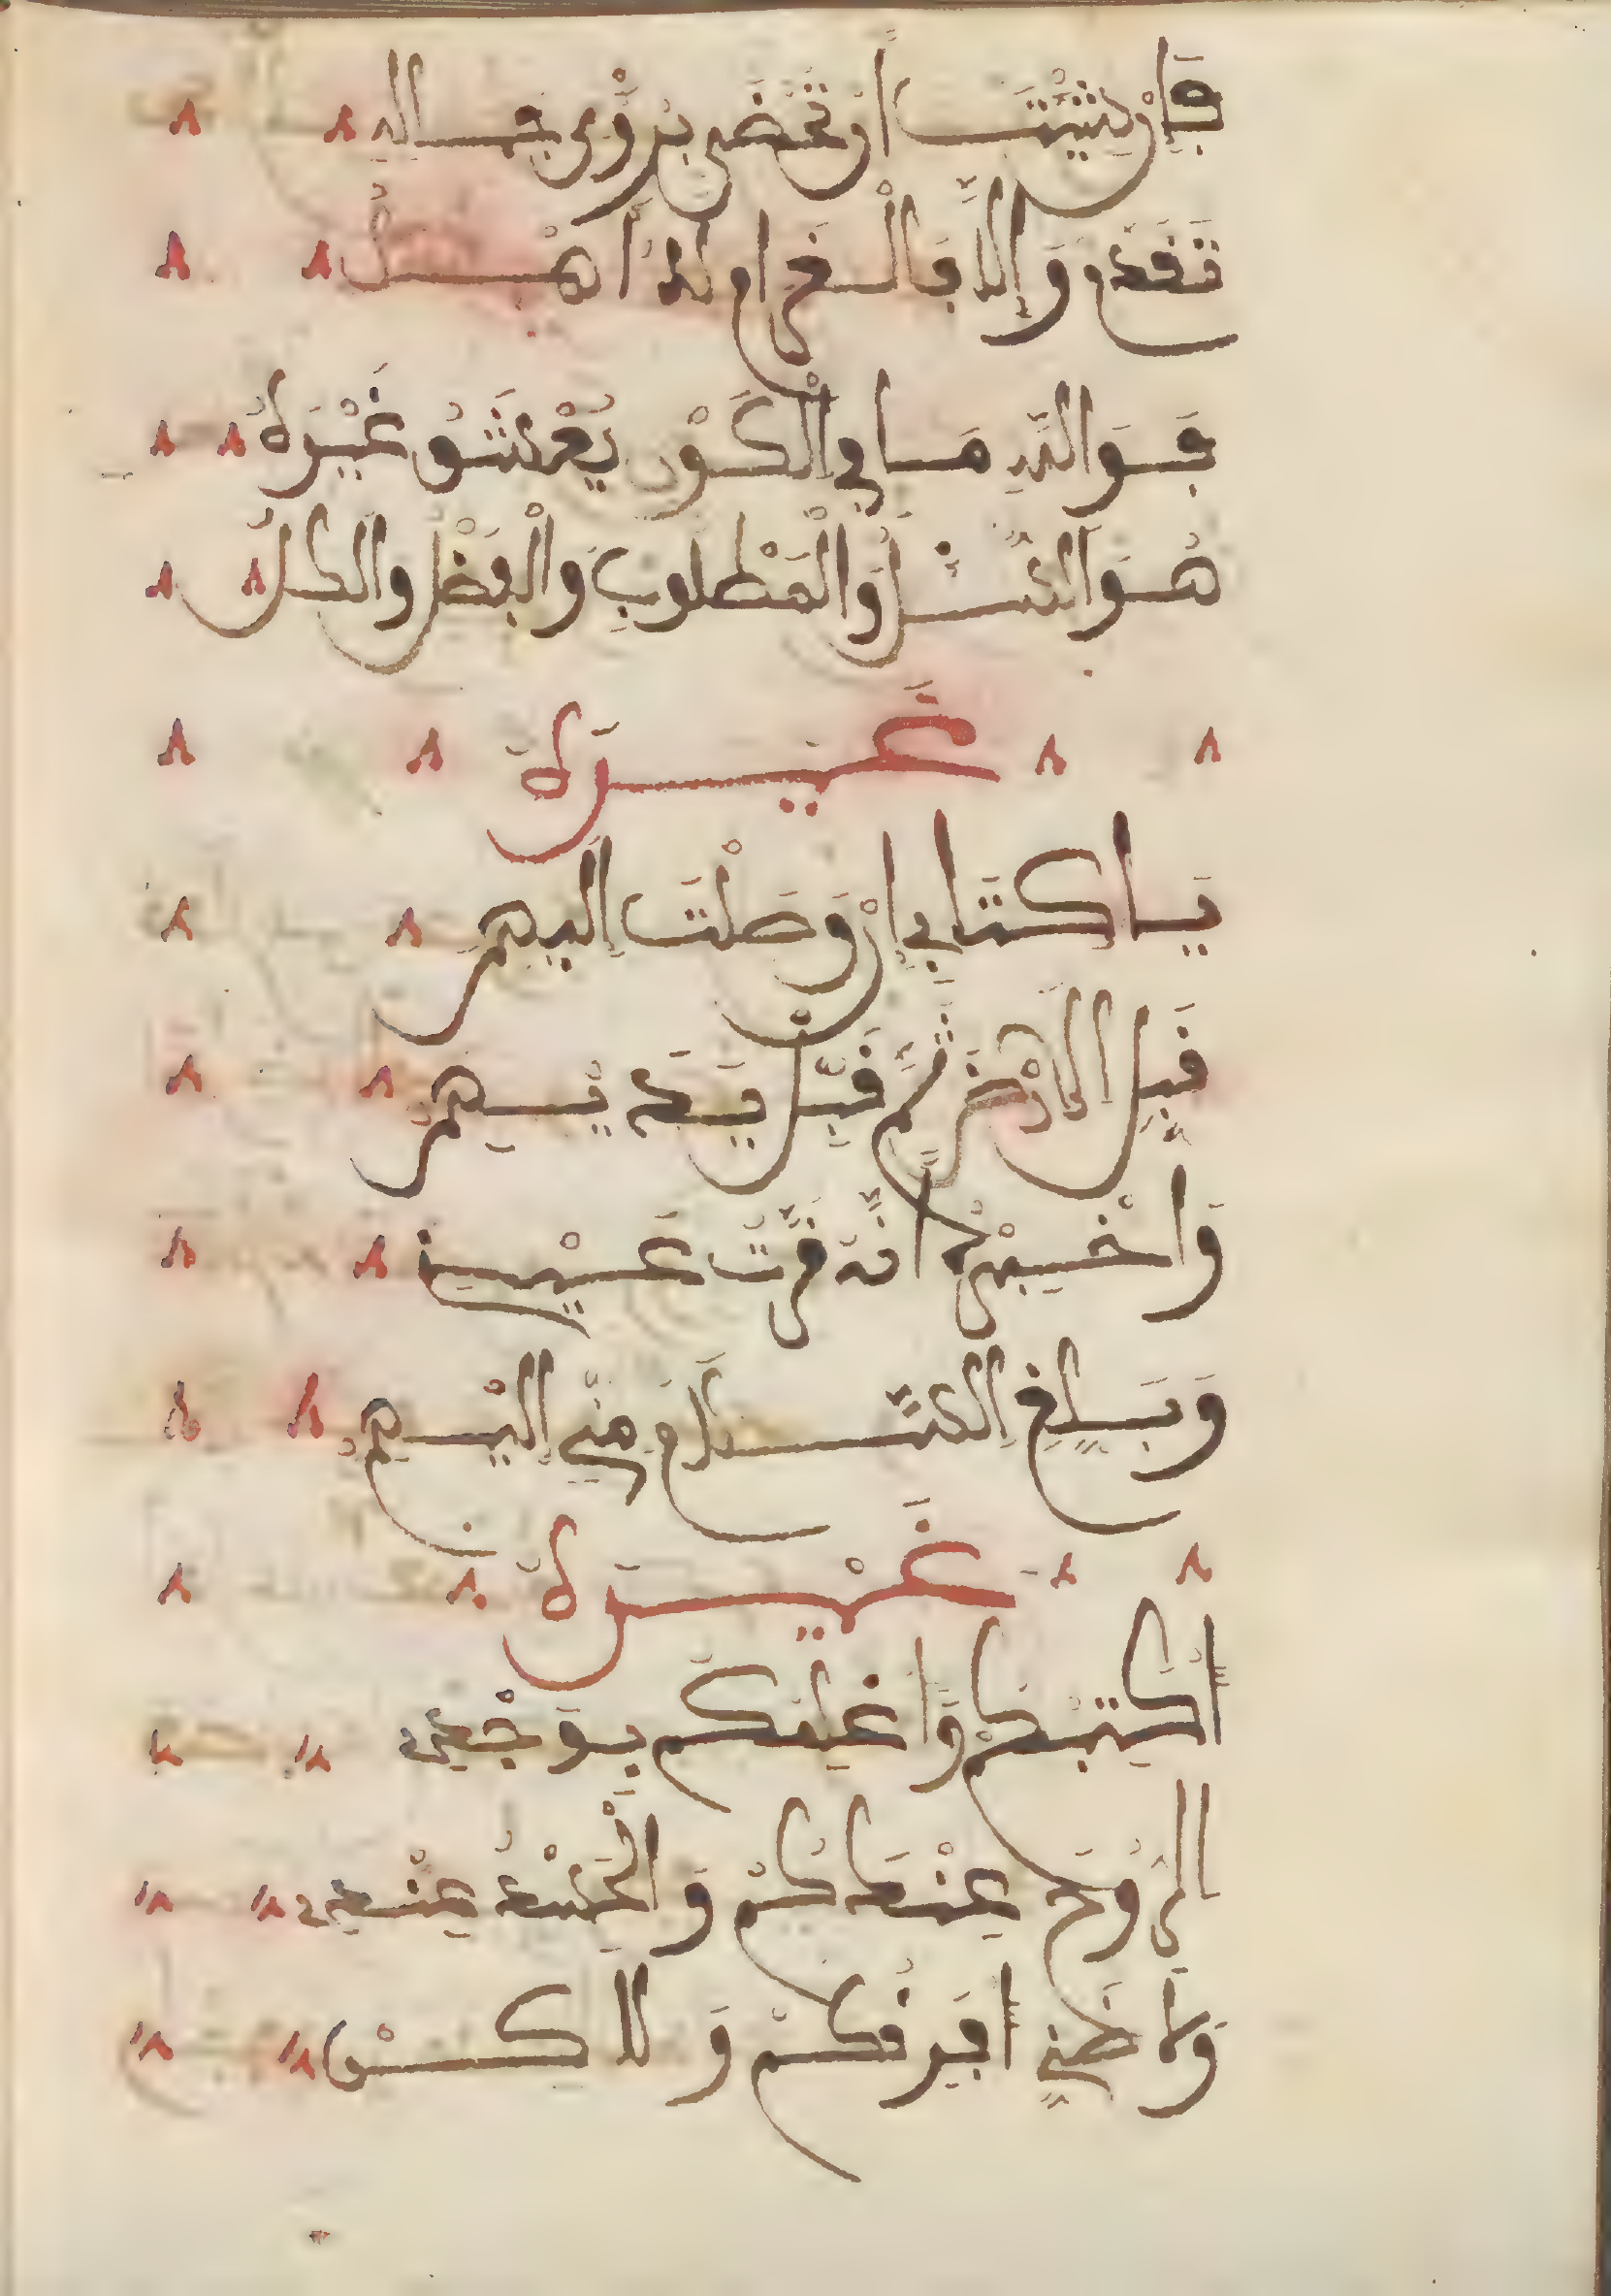 فَإِنْ شِئْتَ أَنْ تَحْضَى بِرُؤْيَى جَمَالِهِ
تَقَدَّمْ وَإِلَّا فَالْغَرَامُ لَهُ أَهْلُ
فَوَاللَّهِ مَا فِي الْكَوْنِ يُعْشَقُ غَيْرُهُ
هُوَ السُّؤْلُ وَالْمَطْلُوبُ وَالْبَعْضُ وَالْكُلُّ
غَيْرُهُ
يَا كِتَابِي إِنْ وَصَلْتَ إِلَيْهِمْ
قَبِّلِ الْأَرْضَ ثُمَّ قَبِّلْ يَدَيْهِمْ
وَاخْبِرْهُمْ أَنَّهُ قَرَّتْ عَيْنِي
وَبَلِّغِ السَّلَامَ مِنِّي إِلَيْهِمْ
غَيْرُهُ
أَكْتُبُكُمْ وَأَعْلَمَكُمْ بِوَجْدِي
الرُّوحُ عِنْدَكُمْ وَالْجُثَّةُ عِنْدِي
وَمَا ظَنِّي أُفَارِقُكُمْ وَلَاكِنْ